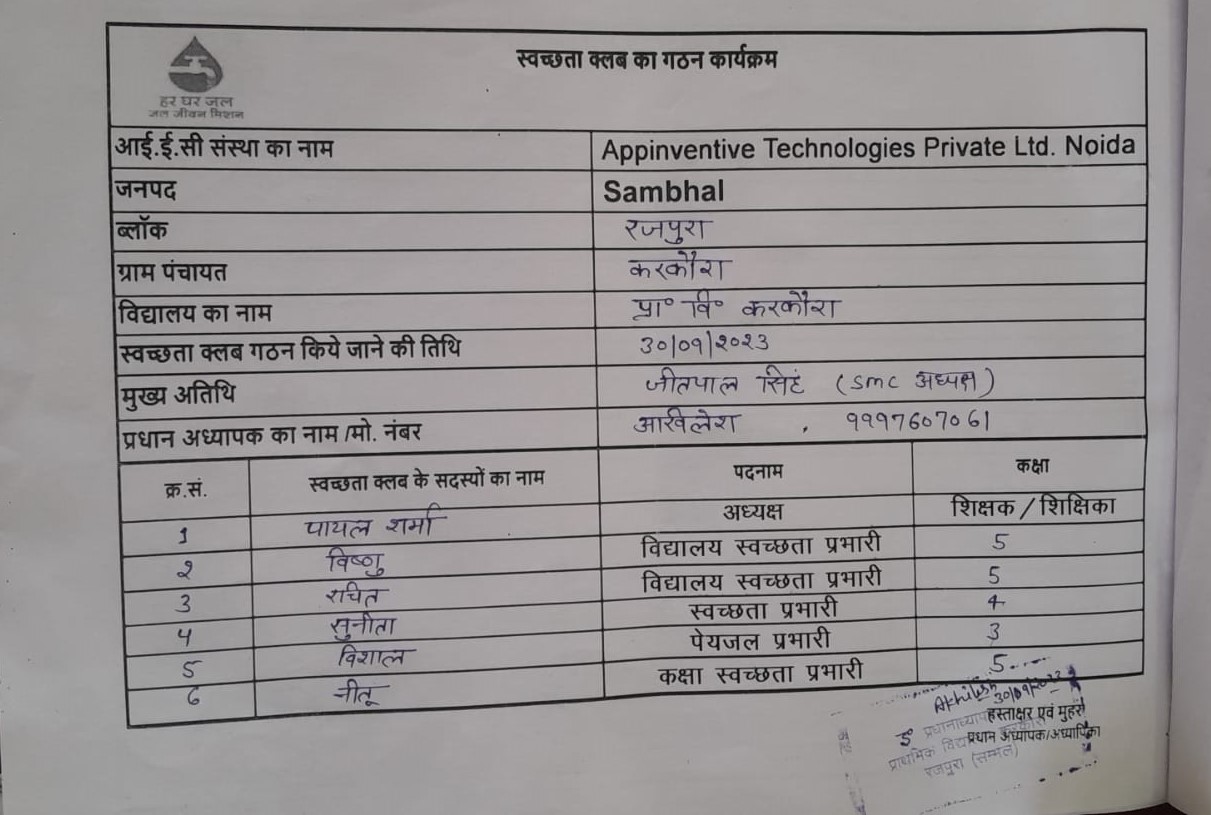 स्वच्छता क्लब का गठन कार्यक्रम
हर घर जल
जल जीवन मिशन
आई.ई.सी संस्था का नाम Appinventive Technologies Private Ltd. Noida
जनपद Sambhal
ब्लॉक रजपुरा
ग्राम पंचायत करकौरा
विद्यालय का नाम प्रा० वि० करकौरा
स्वच्छता क्लब गठन किये जाने की तिथि 30/09/2023
मुख्य अतिथि जीतपाल सिहं (smc अध्यक्ष)
प्रधान अध्यापक का नाम /मो. नंबर अखिलेश , 9997607061
क्र.सं. स्वच्छता क्लब के सदस्यों का नाम पदनाम कक्षा
1 पायल शर्मा अध्यक्ष शिक्षक / शिक्षिका
2 विष्णु विद्यालय स्वच्छता प्रभारी 5
3 रचित विद्यालय स्वच्छता प्रभारी 5
4 सुनीता स्वच्छता प्रभारी 4
5 विशाल पेयजल प्रभारी 3
6 नीतू कक्षा स्वच्छता प्रभारी 5
Akhilesh
30/09/2023
हस्ताक्षर एवं मुहर
प्रधान अध्यापक/अध्यापिका
प्राथमिक
रजपुरा (सम्भल)